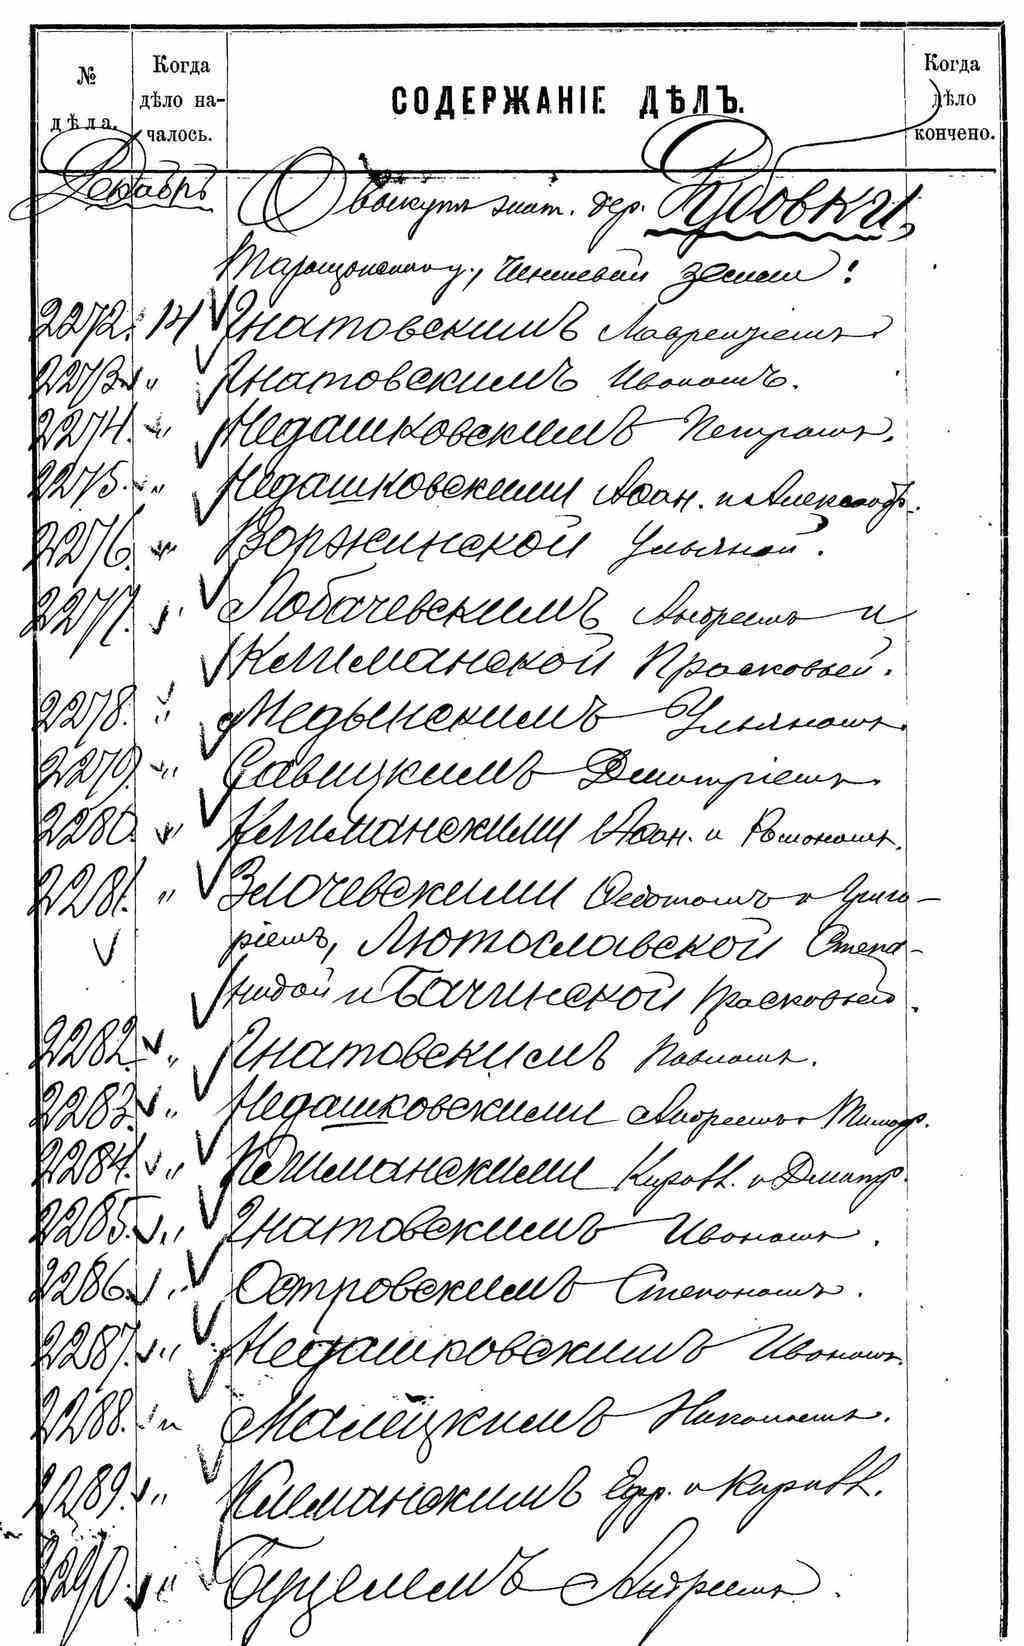 № дѣла.
Когда дѣло на-
чалось.
СОДЕРЖАНІЕ ДѢЛЪ.
Когда дѣло кончено.
Декабрь
О выкупѣ жит. дер. Рудовки,
Таращанскаго у., чиншевой земли:
2272. 14 Гнатовскимъ Лаврентіемъ
2273 " Гнатовскимъ Иваномъ.
2274. " Недашковскимъ Петромъ.
2275. " Недашковскими Аѳан. и Александр.
2276. " Воржинской Ульяной.
2277. " Лобачевскимъ Андреемъ и
Климанской Прасковьей.
2278. " Медынскимъ Ульяномъ.
2279. " Савицкимъ Дмитріемъ.
2280. " Климанскими Аѳан. и Романомъ.
2281. " Злочевскими Ѳедотомъ и Григо-
ріемъ, Лютославской Степа-
нидой и Бачинской Прасковьей.
2282. " Гнатовскимъ Павломъ.
2283. " Недашковскими Андреемъ и Тимоф.
2284. " Климанскими Кирилл. и Дмитр.
2285. " Гнатовскимъ Иваномъ.
2286. " Островскимъ Степаномъ.
2287. " Недашковскимъ Иваномъ.
2288. " Малецкимъ Николаемъ.
2289. " Климанскимъ Ефр. и Кирилл.
2290. " Буцелемъ Андреемъ.